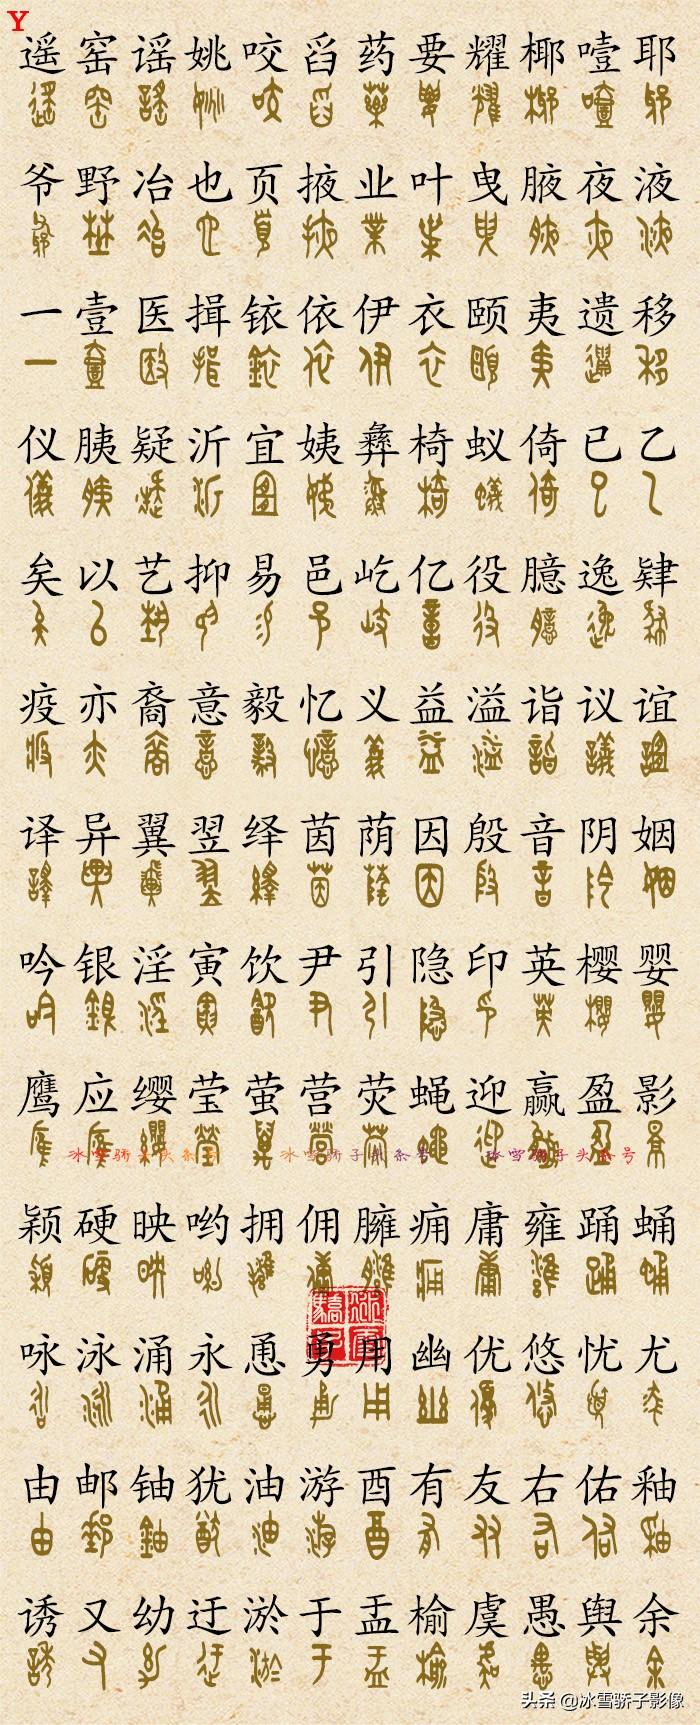 Y
遥窑谣姚咬舀药要耀椰噎耶
爷野冶也页掖业叶曳腋夜液
一壹医揖铱依伊衣颐夷遗移
仪胰疑沂宜姨彝椅蚁倚已乙
矣以艺抑易邑屹亿役臆逸肄
疫亦裔意毅忆义益溢诣议谊
译异翼翌绎茵荫因殷音阴姻
吟银淫寅饮尹引隐印英樱婴
鹰应缨莹萤营荧蝇迎赢盈影
冰雪骄子头条号 冰雪骄子头条号 冰雪骄子头条号
颖硬映哟拥佣臃痈庸雍踊蛹
咏泳涌永恿勇用幽优悠忧尤
由邮铀犹油游酉有友右佑釉
诱又幼迂淤于盂榆虞愚舆余
头条 @冰雪骄子影像